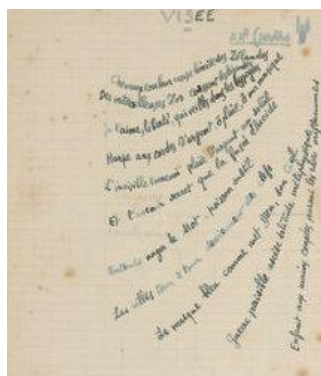 VISÉE
Chevaux couleur cerise limite des Zélandes
Des mitrailleuses d'or coassent les légendes
Je t'aime liberté qui veilles dans les hypogées
Harpe aux cordes d'argent ô pluie ô ma musique
L'invisible ennemi plaie d'argent au soleil
Et l'avenir secret que la fusée élucide
Entends nager le Mot poisson subtil
Les villes tour à tour deviennent des clefs
Le masque bleu comme met Dieu son ciel
Guerre paisible ascèse solitude métaphysique
Enfant aux mains coupées parmi les roses oriflammes